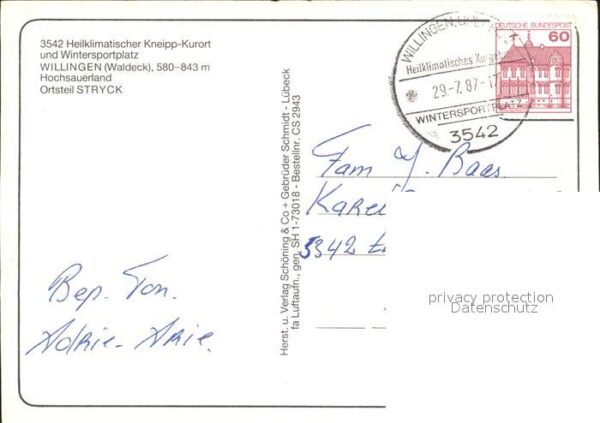 3542 Heilklimatischer Kneipp-Kurort
und Wintersportplatz
WILLINGEN (Waldeck), 580–843 m
Hochsauerland
Ortsteil STRYCK
Bep. Ton.
Adrie- Arie.
Herst. u. Verlag Schöning & Co + Gebrüder Schmidt - Lübeck
fa Luftaufn., gen. SH 1-73018 - Bestellnr. CS 2943
DEUTSCHE BUNDESPOST
60
WILLINGEN, UPL
Heilklimatisches
29.-7.87-17
WINTERSPORTPLATZ
3542
Fam J. Baas.
3342
privacy protection
Datenschutz